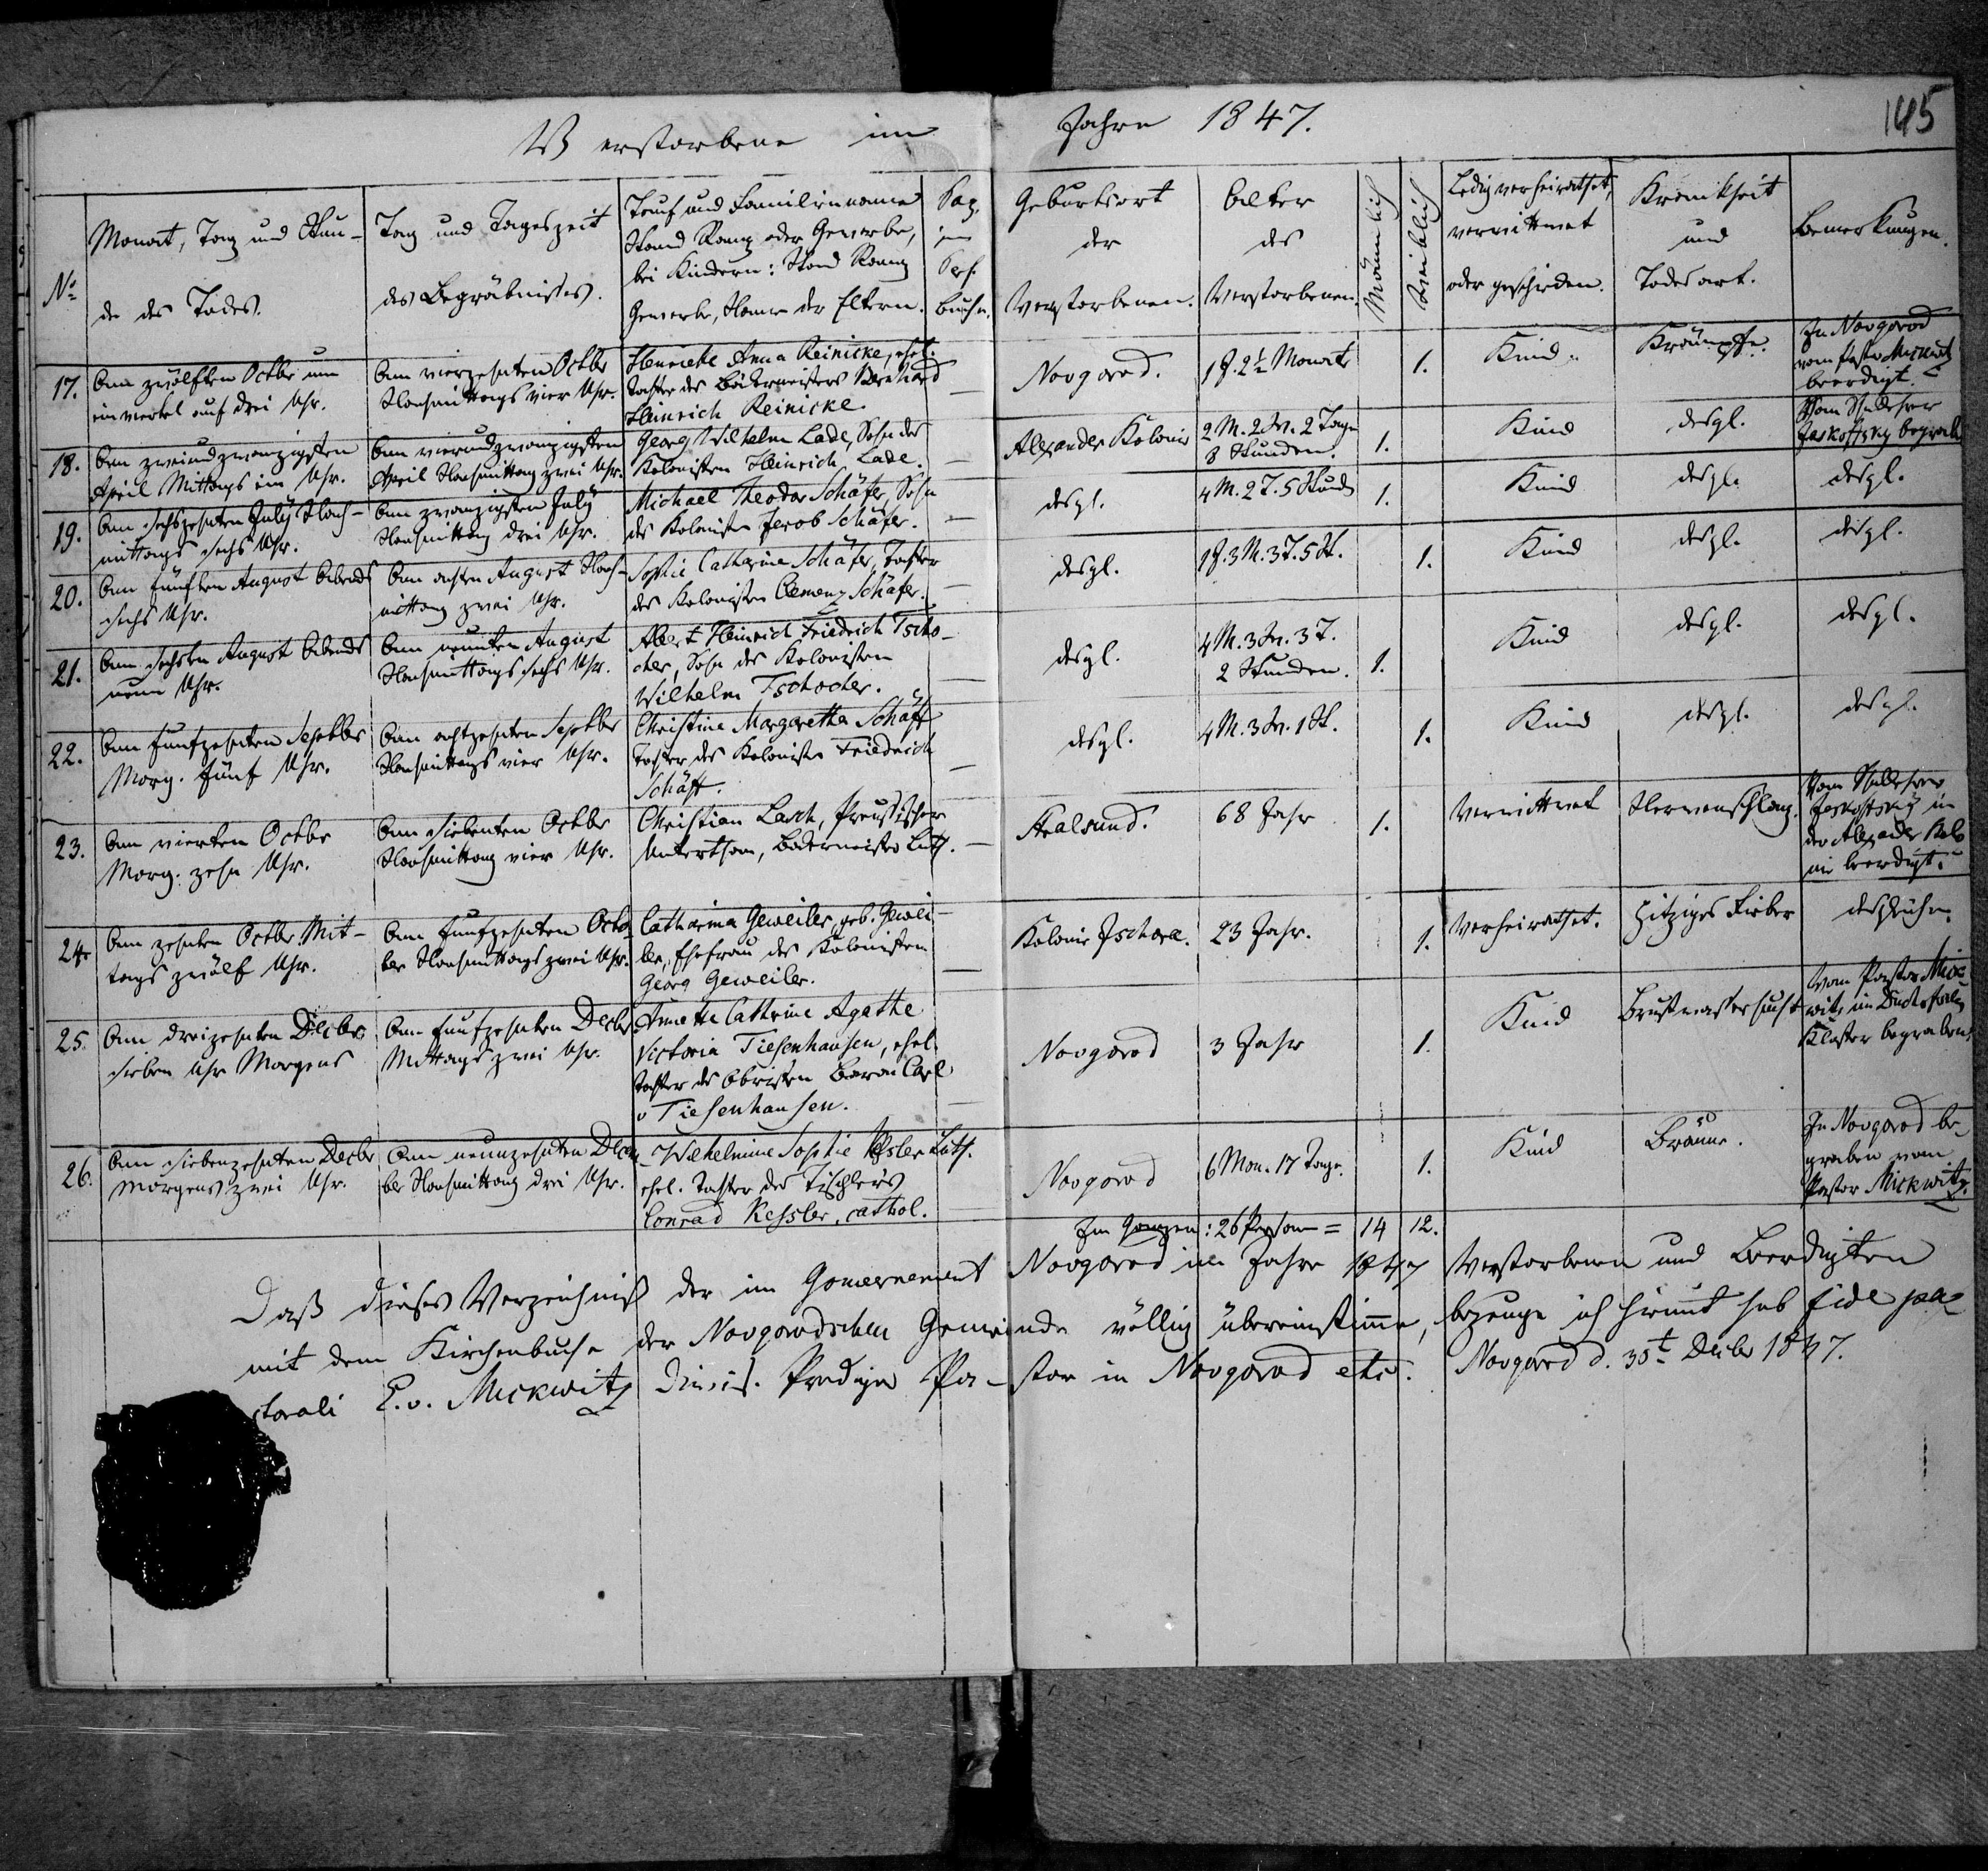 Verstorbene im Jahre 1847.
145
No
Monat, Tag und Stun-
de des Todes.
Tag und Tageszeit
des Begräbnisses.
Tauf und Familienname
Stand Rang oder Gewerbe,
bei Kindern: Stand Rang
Gewerbe, Name der Eltern.
Pag.
im
buche.
Geburtsort
der
Verstorbenen.
Alter
des
Verstorbenen.
Männlich
Weiblich
Ledig verheirathet,
verwittwet
oder geschieden.
Krankheit
und
Todesart.
Bemerkungen.
17.
Am zwölften Octbr um
ein viertel auf drei Uhr.
Am vierzehnten Octbr
Nachmittags vier Uhr.
Henriette Anna Reinicke, ehel.
Tochter des Bäckermeisters Bernhard
Heinrich Reinicke.
Novgorod.
1 J. 2½ Monate
1.
Kind.
Krämpfe.
In Novgorod
vom Pastor Mickwitz
beerdigt.
18.
Am zweiundzwanzigsten
April Mittags ein Uhr.
Am vierundzwanzigsten
April Nachmittag zwei Uhr.
Georg Wilhelm Lade, Sohn des
Kolonisten Heinrich Lade.
Alexander Kolonie
2 M. 2 W. 2 Tage
8 Stunden.
1.
Kind
desgl.
Vom Schullehrer
Jaskoffsky begrab
19.
Am sechszehnten July Nach-
mittags sechs Uhr.
Am zwanzigsten July
Nachmittag drei Uhr.
Michael Theodor Schäfer, Sohn
des Kolonisten Jacob Schäfer.
desgl.
4 M. 2 T. 5 Stund
1.
Kind
desgl.
desgl.
20.
Am fünften August Abends
sechs Uhr.
Am achten August Nach-
mittag zwei Uhr.
Sophie Catharine Schäfer, Tochter
des Kolonisten Clemenz Schäfer.
desgl.
1 J. 3 M. 3 T. 5 St.
1.
Kind
desgl.
desgl.
21.
Am sechsten August Abends
neun Uhr.
Am neunten August
Nachmittags sechs Uhr.
Albert Heinrich Friedrich Tscho-
cher, Sohn des Kolonisten
Wilhelm Tschocher.
desgl.
4 M. 3 W. 3 T.
2 Stunden.
1.
Kind
desgl.
desgl.
22.
Am fünfzehnten Septbr
Morg. fünf Uhr.
Am achtzehnten Septbr
Nachmittags vier Uhr.
Christine Margaretha Schäff
Tochter des Kolonisten Friedrich
Schäff.
desgl.
4 M. 3 W. 1 St.
1.
Kind
desgl.
desgl.
23.
Am vierten Octbr
Morg. zehn Uhr.
Am siebenten Octbr
Nachmittag vier Uhr.
Christian Lasch, Preussischer
Unterthan, Bäckermeister Luth.
Stralsund.
68 Jahr
1.
Verwittwet
Nervenschlag.
Vom Schullehrer
Jaskoffsky in
der Alexander Kolo
nie beerdigt.
24.
Am zehnten Octbr Mit-
tags zwölf Uhr.
Am fünfzehnten Octo
ber Nachmittags zwei Uhr.
Catharina Geweiler, geb. Gewei-
ler, Ehefrau des Kolonisten
Georg Geweiler.
Kolonie Ischora.
23 Jahr.
1.
Verheirathet.
Hitziges Fieber
25.
Am dreizehnten Decbr
sieben Uhr Morgens
Am fünfzehnten Decbr
Mittags zwei Uhr.
Annette Cathrine Agathe
Victoria Tiesenhausen, ehel.
Tochter des Obristen Baron Carl
v Tiesenhausen.
Novgorod
3 Jahr
1.
Kind
Brustwassersucht
Vom Pastor Mick-
witz im
Kloster begraben.
26.
Am siebenzehnten Decbr
Morgens zwei Uhr.
Am neunzehnten Decem
ber Nachmittag drei Uhr.
Wilhelmine Sophie Kesler Luth.
ehel. Tochter des Tischlers
Conrad Kessler, cathol.
Novgorod
6 Mon. 17 Tage.
1.
Kind
Bräune.
In Novgorod be-
graben vom
Pastor Mickwitz.
Im Ganzen: 26 Person = 14 12.
Daß dieses Verzeichniß der im Gouvernement Novgorod im Jahre 1847 Verstorbenen und Beerdigten
mit dem Kirchenbuche der Novgorodschen Gemeinde völlig übereinstimme, bezeuge ich hiermit sub fide pa-
storali E. v. Mickwitz Divis. Prediger Pa-stor in Novgorod etc. Novgorod d. 30t Decbr 1847.